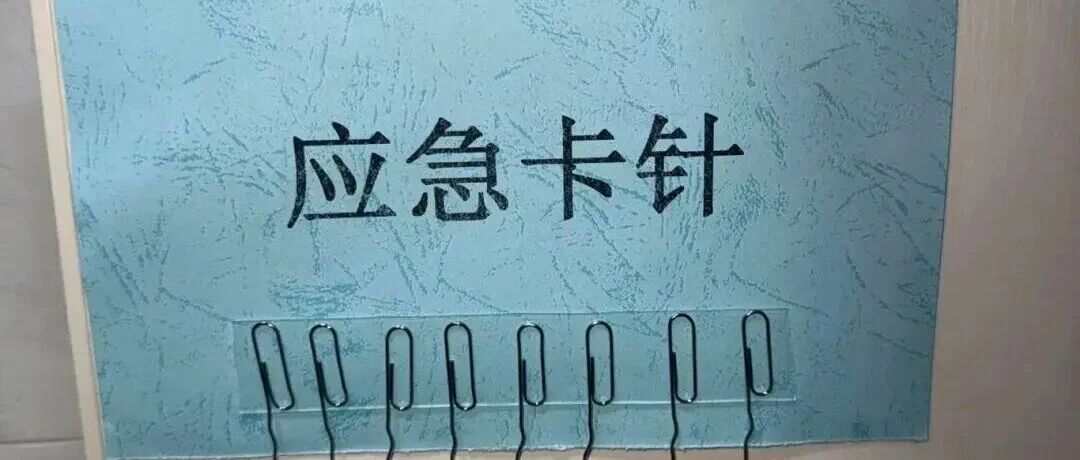 应急卡针